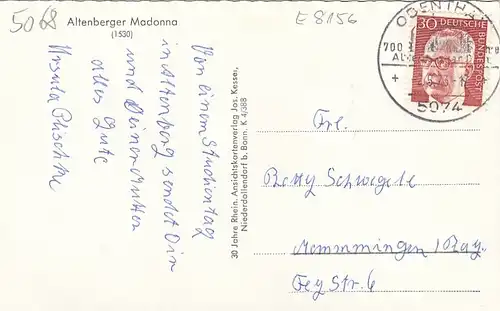 5068
Altenberger Madonna
(1530)
E 8156
Von einem Studientag
in Altenberg sendet Dir
und Deiner Mutter
alles Gute
Ursula
30 Jahre Rhein. Ansichtskartenverlag Jos. Kessel,
Niederdollendorf b. Bonn. K 4/388
ODENTHAL
700
5074
30
DEUTSCHE
BUNDESPOST
Frl.
Betty Schwegele
Memmingen / Bay.
Fey Str. 6